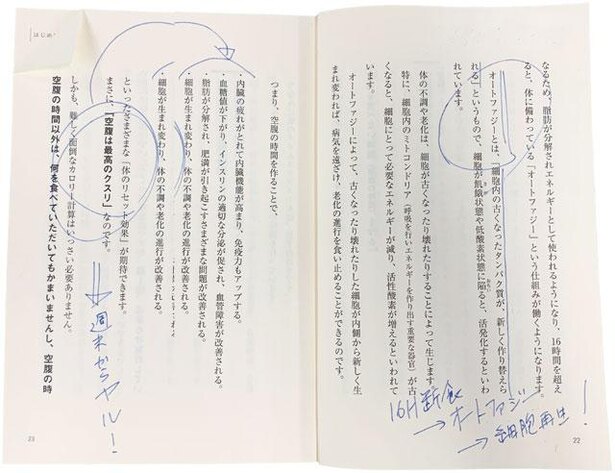 なるため、脂肪が分解されエネルギーとして使われるようになり、16時間を超え
ると、体に備わっている「オートファジー」という仕組みが働くようになります。
オートファジーとは、「細胞内の古くなったタンパク質が、新しく作り替えら
れる」というもので、細胞が飢餓状態や低酸素状態に陥ると、活発化するといわ
れています。
体の不調や老化は、細胞が古くなったり壊れたりすることによって生じます。
特に、細胞内のミトコンドリア(呼吸を行いエネルギーを作り出す重要な器官)が古
くなると、細胞にとって必要なエネルギーが減り、活性酸素が増えるといわれて
います。
オートファジーによって、古くなったり壊れたりした細胞が内側から新しく生
まれ変われば、病気を遠ざけ、老化の進行を食い止めることができるのです。
16H断食
→オートファジー
→細胞再生!
22
はじめ
つまり、空腹の時間を作ることで、
・内臓の疲れがとれて内臓機能が高まり、免疫力もアップする。
・血糖値が下がり、インスリンの適切な分泌が促され、血管障害が改善される。
・脂肪が分解され、肥満が引き起こすさまざまな問題が改善される。
・細胞が生まれ変わり、体の不調や老化の進行が改善される。
・細胞が生まれ変わり、体の不調や老化の進行が改善される。
といったさまざまな「体のリセット効果」が期待できます。
まさに、「空腹は最高のクスリ」なのです。
しかも、難しく面倒なカロリー計算はいっさい必要ありません。
空腹の時間以外は、何を食べていただいてもかまいませんし、空腹の時
→週末からヤル!
23